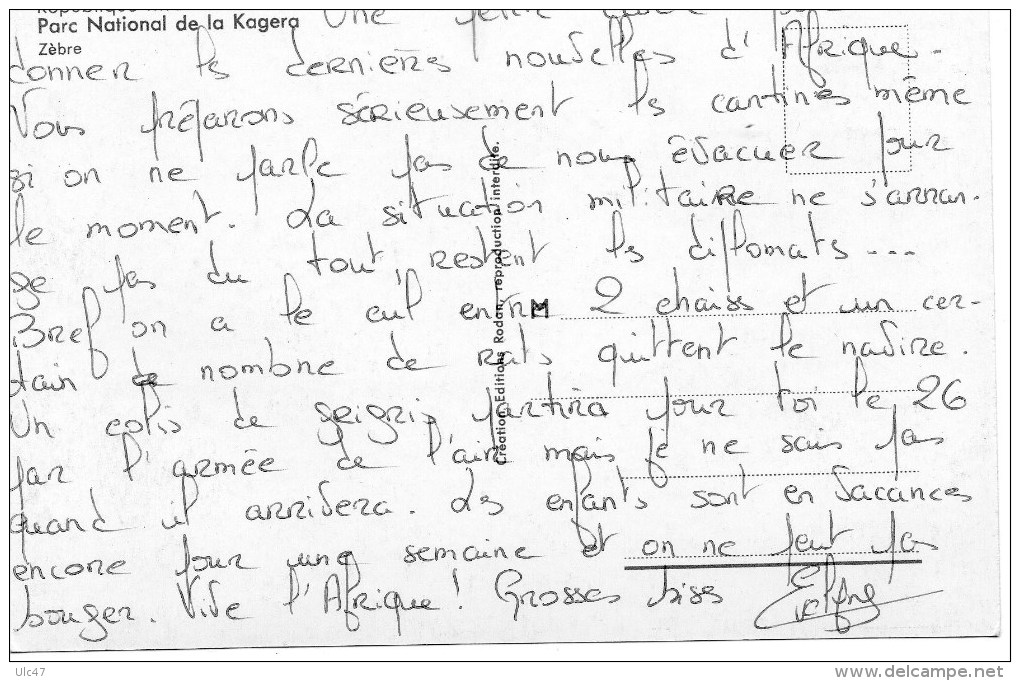 Parc National de la Kagera
Zèbre
Une petite
donner les dernières nouvelles d'Afrique.
Nous préparons sérieusement les cantines même
si on ne parle pas de nous évacuer pour
le moment. La situation militaire ne s'arran-
ge pas du tout, restent les diplomats ...
Bref on a le cul entre 2 chaises et un cer-
tain de nombre de rats quittent le navire.
Un colis de grigris partira pour toi le 26
par l'armée de l'air mais je ne sais pas
quand il arrivera. Les enfants sont en vacances
encore pour une semaine et on ne peut pas
bouger. Vive l'Afrique! Grosses bises
Création Editions Rodan, reproduction interdite.
Ulc47
delcampe.net